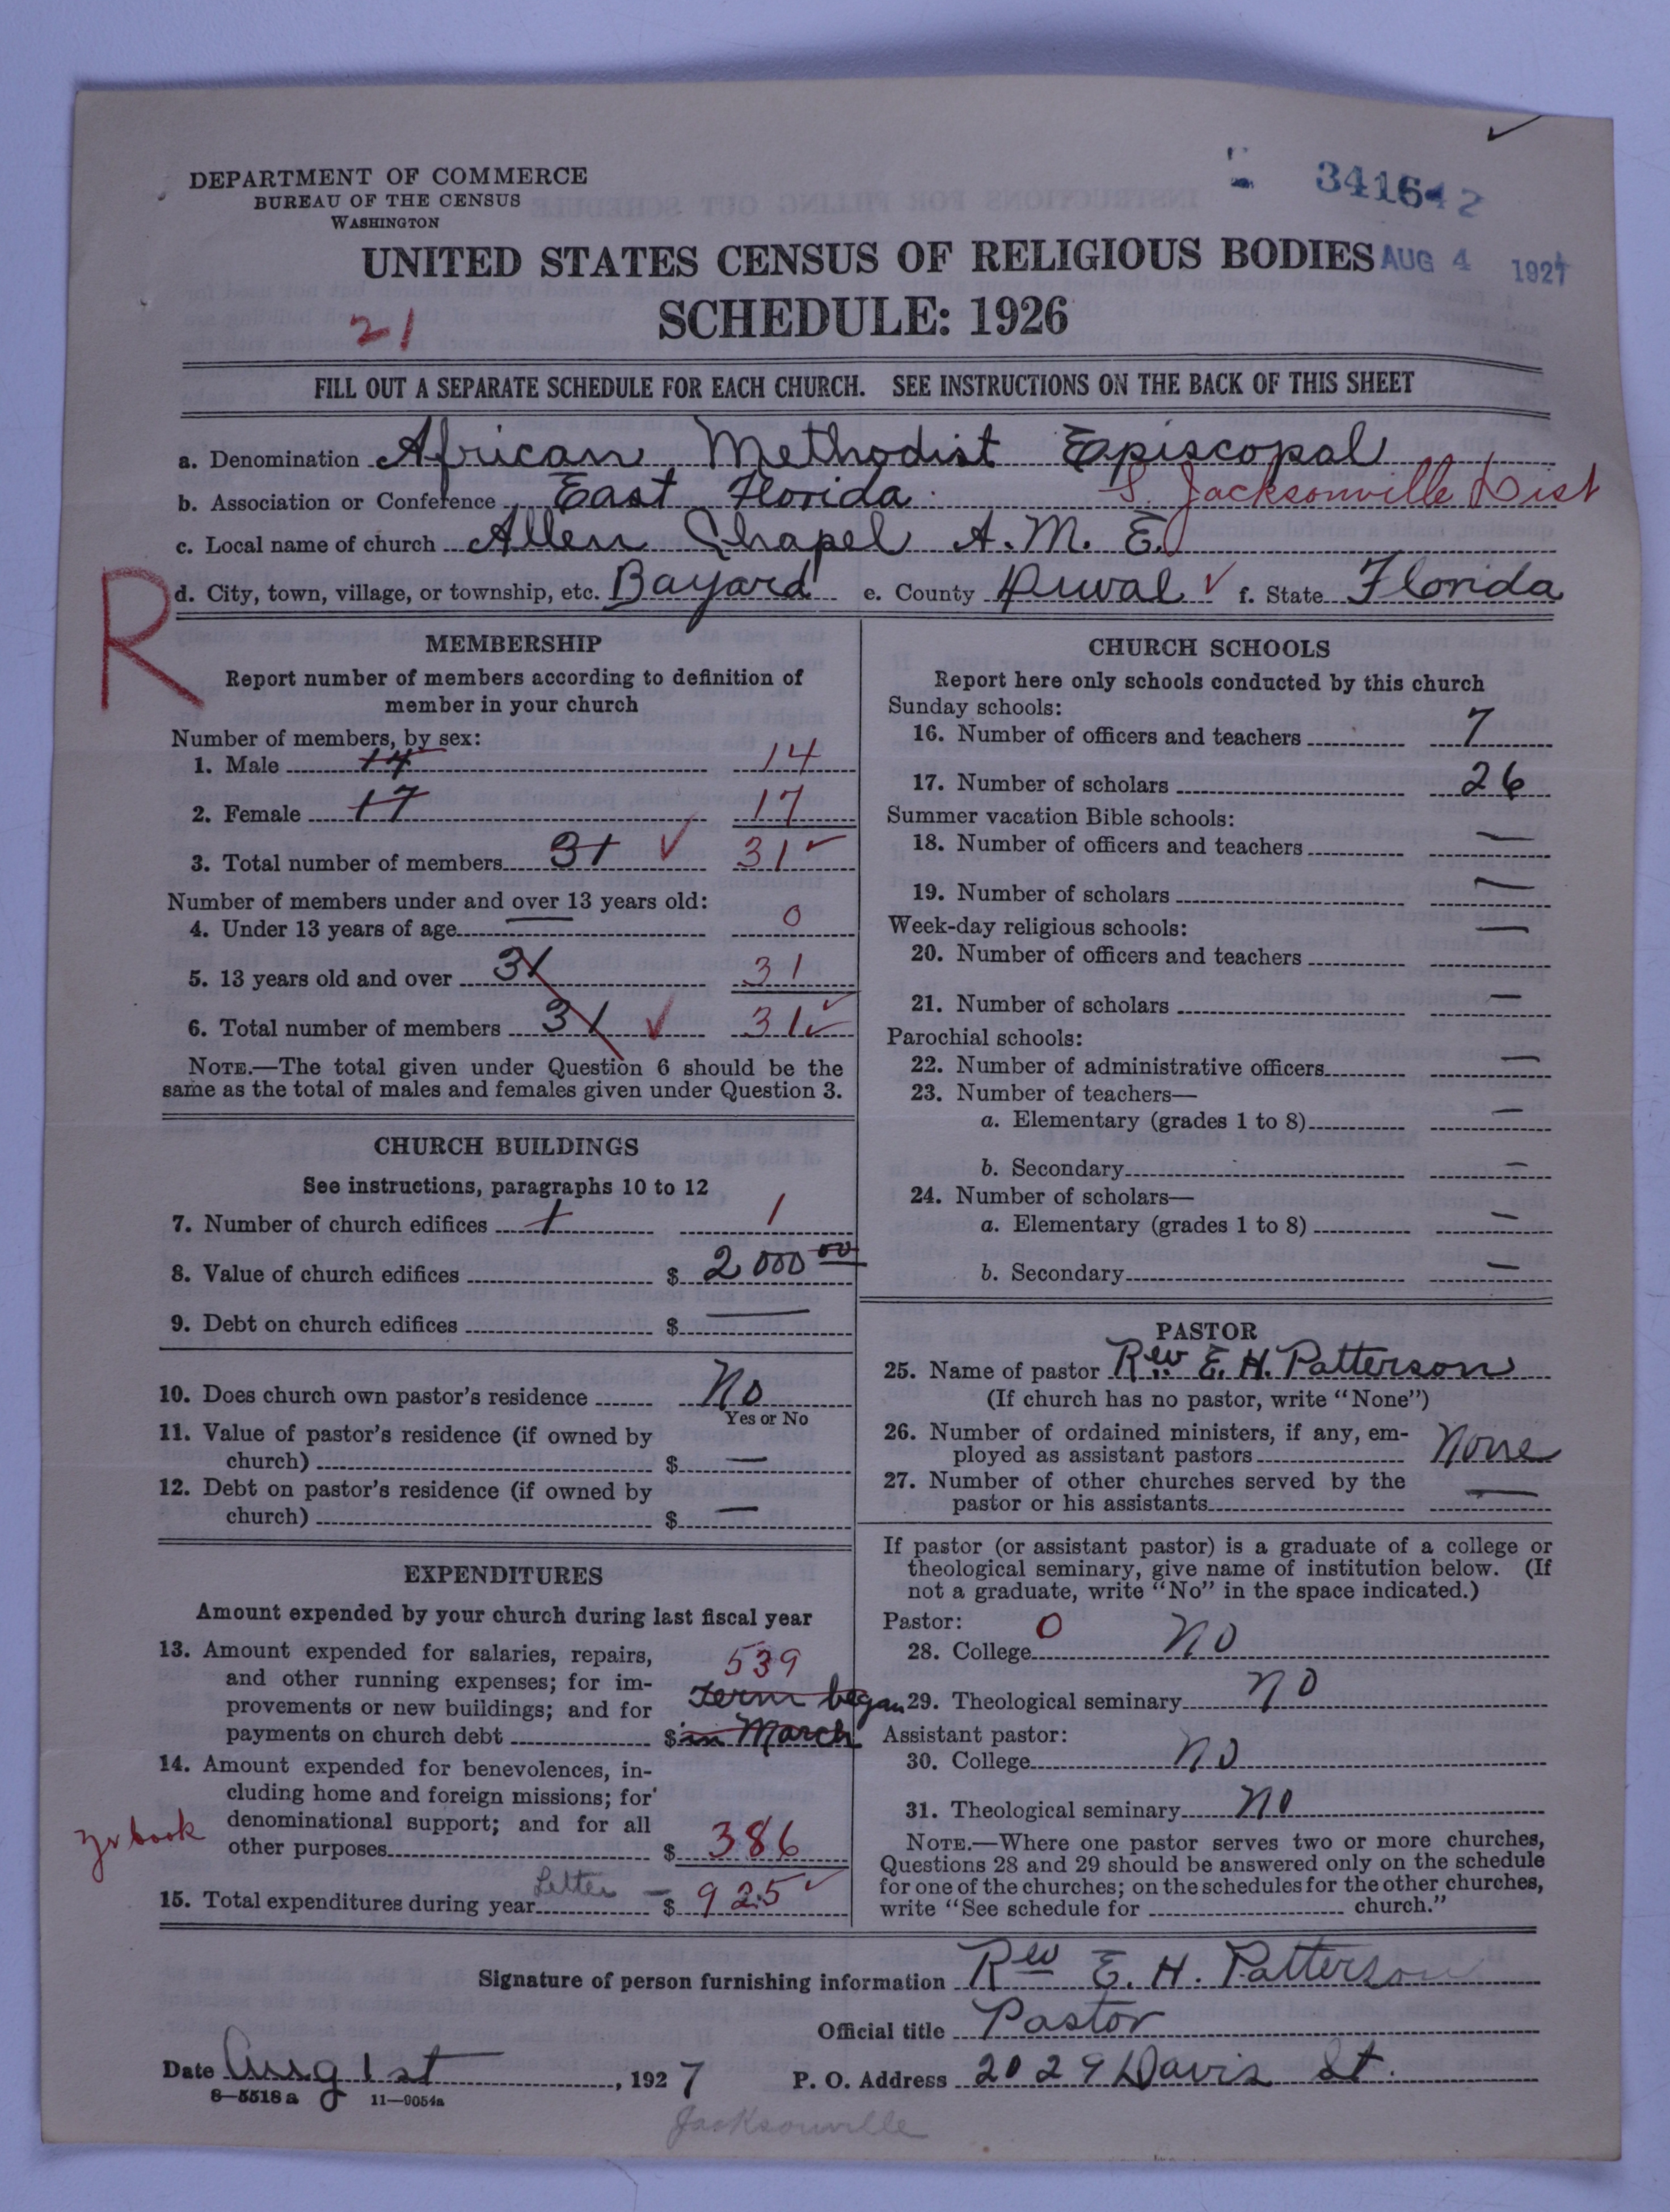 DEPARTMENT OF COMMERCE
BUREAU OF THE CENSUS
WASHINGTON
341642
UNITED STATES CENSUS OF RELIGIOUS BODIES
AUG 4 1927
SCHEDULE: 1926
21
FILL OUT A SEPARATE SCHEDULE FOR EACH CHURCH. SEE INSTRUCTIONS ON THE BACK OF THIS SHEET
a. Denomination African Methodist Episcopal
b. Association or Conference East Florida S. Jacksonville Dist
c. Local name of church Allen Chapel A.M.E.
R
d. City, town, village, or township, etc. Bayard e. County Duval ✓ f. State Florida
MEMBERSHIP
Report number of members according to definition of
member in your church
Number of members, by sex:
1. Male 14 14
2. Female 17 17
3. Total number of members 31 ✓ 31 ✓
Number of members under and over 13 years old:
4. Under 13 years of age 0
5. 13 years old and over 31 31
6. Total number of members 31 ✓ 31 ✓
NOTE.—The total given under Question 6 should be the
same as the total of males and females given under Question 3.
CHURCH BUILDINGS
See instructions, paragraphs 10 to 12
7. Number of church edifices 1 1
8. Value of church edifices $ 2000 00
9. Debt on church edifices $ —
10. Does church own pastor's residence No
Yes or No
11. Value of pastor's residence (if owned by
church) $ —
12. Debt on pastor's residence (if owned by
church) $ —
EXPENDITURES
Amount expended by your church during last fiscal year
13. Amount expended for salaries, repairs,
and other running expenses; for im-
provements or new buildings; and for
payments on church debt $
539
Term began
in March
14. Amount expended for benevolences, in-
cluding home and foreign missions; for
denominational support; and for all
other purposes $ 386
yr book
15. Total expenditures during year Letter — $ 925 ✓
CHURCH SCHOOLS
Report here only schools conducted by this church
Sunday schools:
16. Number of officers and teachers 7
17. Number of scholars 26
Summer vacation Bible schools:
18. Number of officers and teachers —
19. Number of scholars —
Week-day religious schools: —
20. Number of officers and teachers
21. Number of scholars —
Parochial schools:
22. Number of administrative officers —
23. Number of teachers—
a. Elementary (grades 1 to 8) —
b. Secondary —
24. Number of scholars—
a. Elementary (grades 1 to 8) —
b. Secondary —
PASTOR
25. Name of pastor Rev. E. H. Patterson
(If church has no pastor, write "None")
26. Number of ordained ministers, if any, em-
ployed as assistant pastors None
27. Number of other churches served by the
pastor or his assistants —
If pastor (or assistant pastor) is a graduate of a college or
theological seminary, give name of institution below. (If
not a graduate, write "No" in the space indicated.)
Pastor: 0
28. College No
29. Theological seminary No
Assistant pastor:
30. College No
31. Theological seminary No
NOTE.—Where one pastor serves two or more churches,
Questions 28 and 29 should be answered only on the schedule
for one of the churches; on the schedules for the other churches,
write "See schedule for church."
Signature of person furnishing information Rev E. H. Patterson
Official title Pastor
Date Aug 1st, 1927 P. O. Address 2029 Davis St.
8—5518 a 11—9054a
Jacksonville